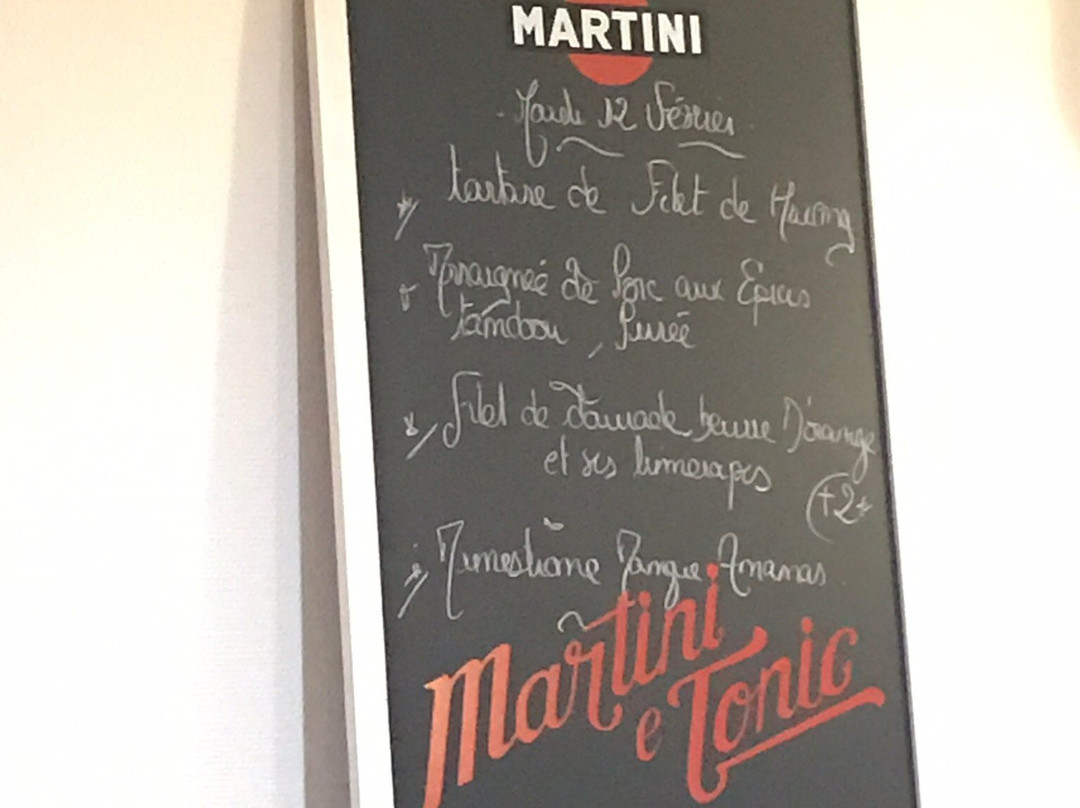 MARTINI
Mardi 12 Février
tartare de Filet de Hareng
Araigneé de Porc aux Epices
tandoori, Pureé
Filet de daurade beurre D'orange
et ses
(+2€)
Minestrone Mangue Ananas
Martini
e Tonic